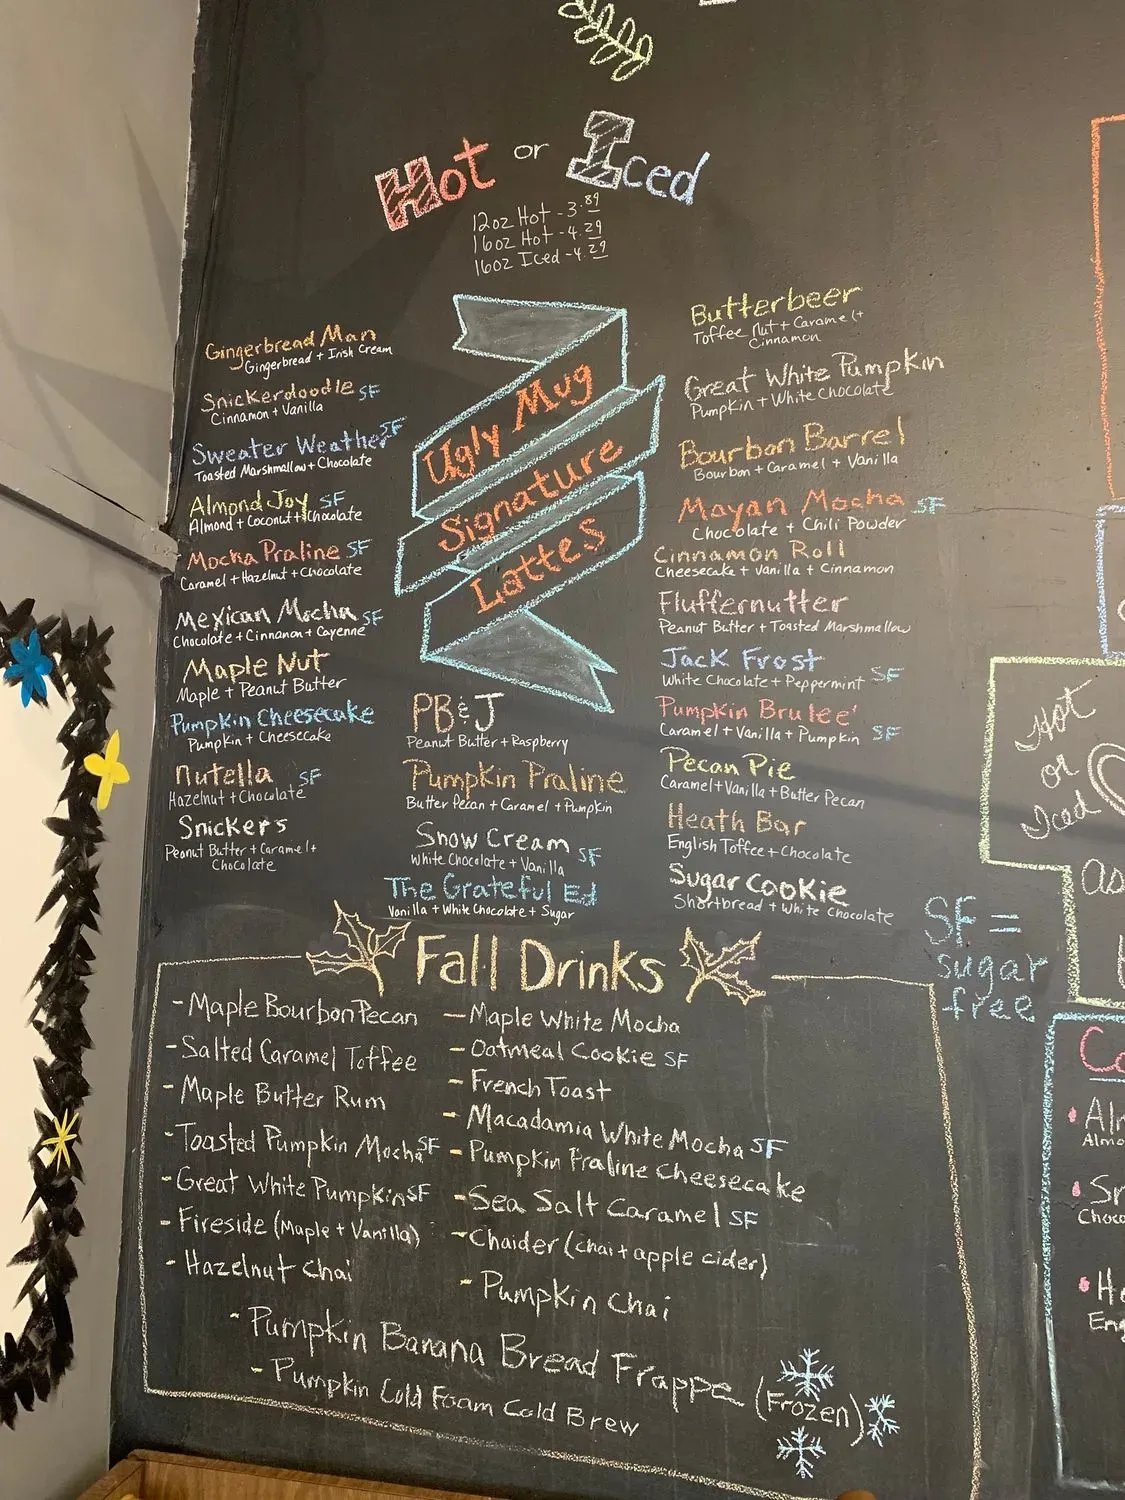 Hot or Iced
12oz Hot - 3.89
16oz Hot - 4.29
16oz Iced - 4.29
Ugly Mug
Signature
Lattes
Gingerbread Man
Gingerbread + Irish Cream
Snickerdoodle SF
Cinnamon + Vanilla
Sweater Weather SF
Toasted Marshmallow + Chocolate
Almond Joy SF
Almond + Coconut + Chocolate
Mocha Praline SF
Caramel + Hazelnut + Chocolate
Mexican Mocha SF
Chocolate + Cinnamon + Cayenne
Maple Nut
Maple + Peanut Butter
Pumpkin Cheesecake
Pumpkin + Cheesecake
Nutella SF
Hazelnut + Chocolate
Snickers
Peanut Butter + Caramel +
Chocolate
PB & J
Peanut Butter + Raspberry
Pumpkin Praline
Butter Pecan + Caramel + Pumpkin
Snow Cream
White Chocolate + Vanilla SF
The Grateful Ed
Vanilla + White Chocolate + Sugar
Butterbeer
Toffee Nut + Caramel +
Cinnamon
Great White Pumpkin
Pumpkin + White Chocolate
Bourbon Barrel
Bourbon + Caramel + Vanilla
Mayan Mocha SF
Chocolate + Chili Powder
Cinnamon Roll
Cheesecake + Vanilla + Cinnamon
Fluffernutter
Peanut Butter + Toasted Marshmallow
Jack Frost
White Chocolate + Peppermint SF
Pumpkin Brulee'
Caramel + Vanilla + Pumpkin SF
Pecan Pie
Caramel + Vanilla + Butter Pecan
Heath Bar
English Toffee + Chocolate
Sugar Cookie
Shortbread + White Chocolate
SF =
sugar
free
Fall Drinks
- Maple Bourbon Pecan
- Salted Caramel Toffee
- Maple Butter Rum
- Toasted Pumpkin Mocha SF
- Great White Pumpkin SF
- Fireside (Maple + Vanilla)
- Hazelnut Chai
- Maple White Mocha
- Oatmeal Cookie SF
- French Toast
- Macadamia White Mocha SF
- Pumpkin Praline Cheesecake
- Sea Salt Caramel SF
- Chaider (chai + apple cider)
- Pumpkin Chai
- Pumpkin Banana Bread Frappe (Frozen)
- Pumpkin Cold Foam Cold Brew
Hot
or
Iced